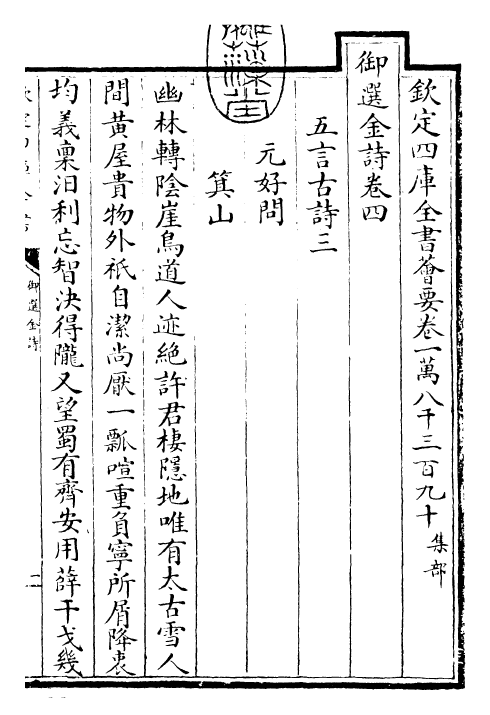 欽定四庫全書薈要卷一萬八千三百九十 集部
御選金詩卷四
五言古詩三
元好問
箕山
幽林轉陰崖鳥道人迹絶許君棲隱地唯有太古雪人
間黃屋貴物外衹自潔尚厭一瓢喧重負寧所屑降衷
均義稟汩利忘智決得隴又望蜀有齊安用薛干戈幾
御選金詩